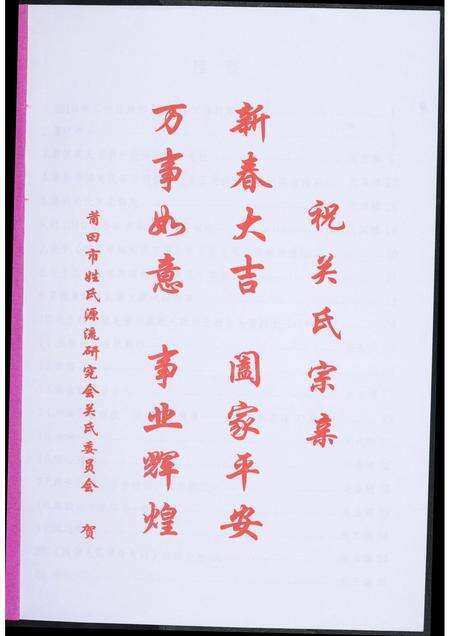 祝关氏宗亲
新春大吉 阖家平安
万事如意 事业辉煌
莆田市姓氏源流研究会关氏委员会 贺